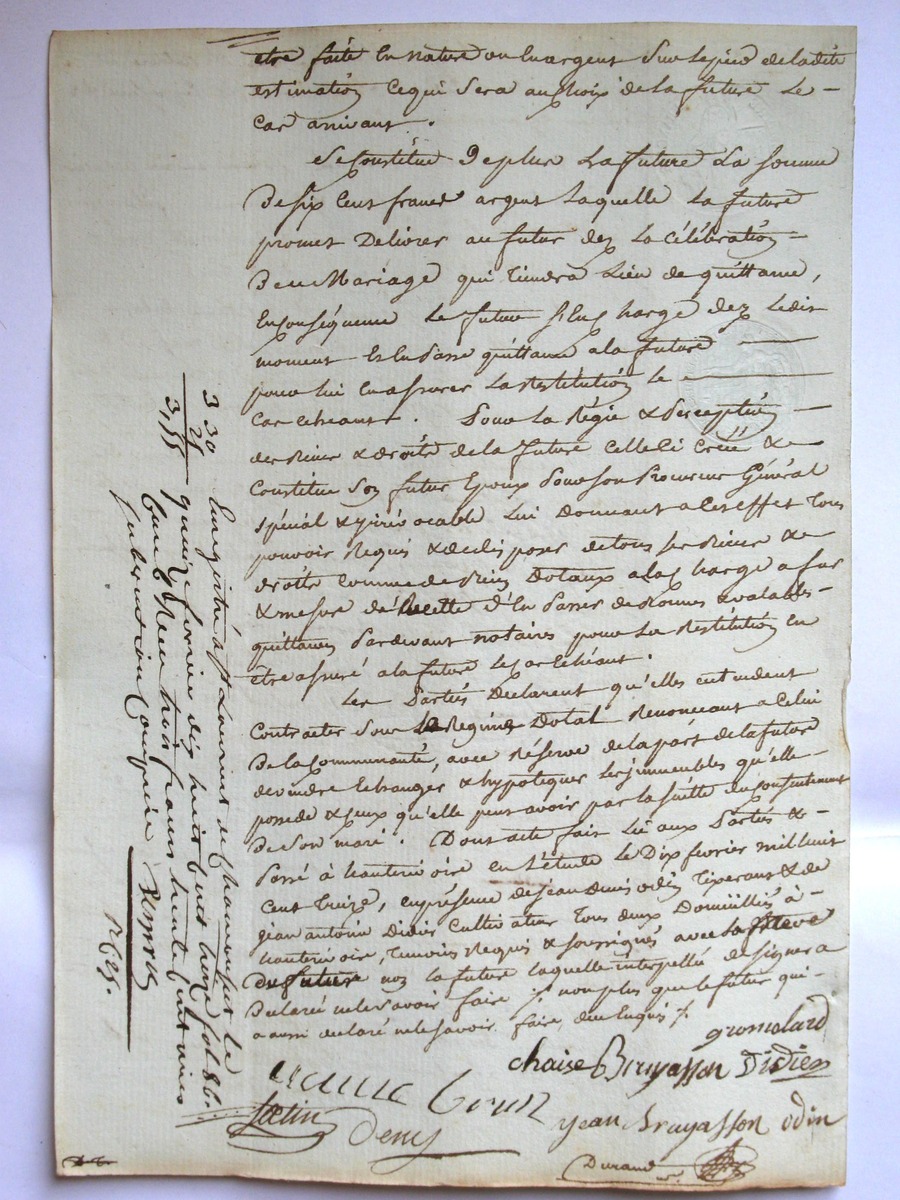 être faite en nature ou en argent sur le pied de la dite
estimation ce qui sera au choix de la future le
cas arrivant.
Se Constitue de plus la future la somme
de six cent francs argent laquelle la future
promet délivrer au futur dez la célébration
de ce Mariage qui tiendra lieu de quittance,
en conséquence le futur s'en charge dez ledit
moment et en passe quittance a la future
pour lui en assurer la restitution le
cas echeant. Pour la Régie & perception
des biens & droits de la future celle ci créé &
Constitue son futur Epoux pour son Procureur Général
spécial & irrévocable lui donnant a cet effet tous
pouvoir requis & de disposer de tous ses biens &
droits comme de biens dotaux a la charge a fur
& mesure de recette d'en passer de bonnes & valables
quittances pardevant notaires pour la restitution en
être assuré a la future le cas echéant.
Les Partiés déclarent qu'elles entendent
Contracter sous le Regime Dotal renonceant a Celui
de la Communauté, avec réserve de la part de la future
de vendre echanger & hypotequer les immeubles qu'elle
possede & ceux qu'elle peut avoir par la suitte du consentement
de son mari. Dont acte fait lu aux Partiés &
passé à hauterivoire en l'étude le Dix fevrier mil huit
Cent treize, en présence de jean denis odin tixerant & de
jean antoine Didier Cultivateur tous deux Domiciliés à
hauterivoire, temoins requis & soussignés avec
du future non la future laquelle interpellé de signer a
Declaré ne le savoir faire non plus que le futur qui
a aussi declaré ne le savoir faire, de ce enquis
gromolard
chaise Bruyasson Didier
jean Bruyasson odin
Denis
Durand
3 30
3,55
Enregistré à St Laurent de chamousset le
quinze fevrier dix huit cent treize fol 86.
trois francs trente centimes
subvention comprise